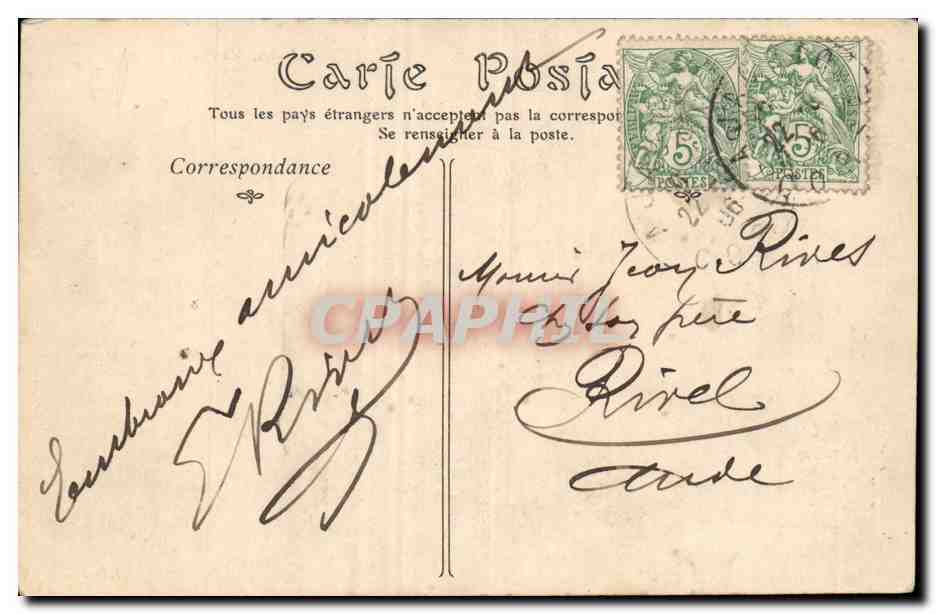 Carte Posta
Tous les pays étrangers n'acceptent pas la correspon
Se renseigner à la poste.
Correspondance
5c 5c
POSTES POSTES
22
22
Embrasse amicalement
Monsieur Jean Rives
chez son père
Rivel
Aude
CPAPHIL